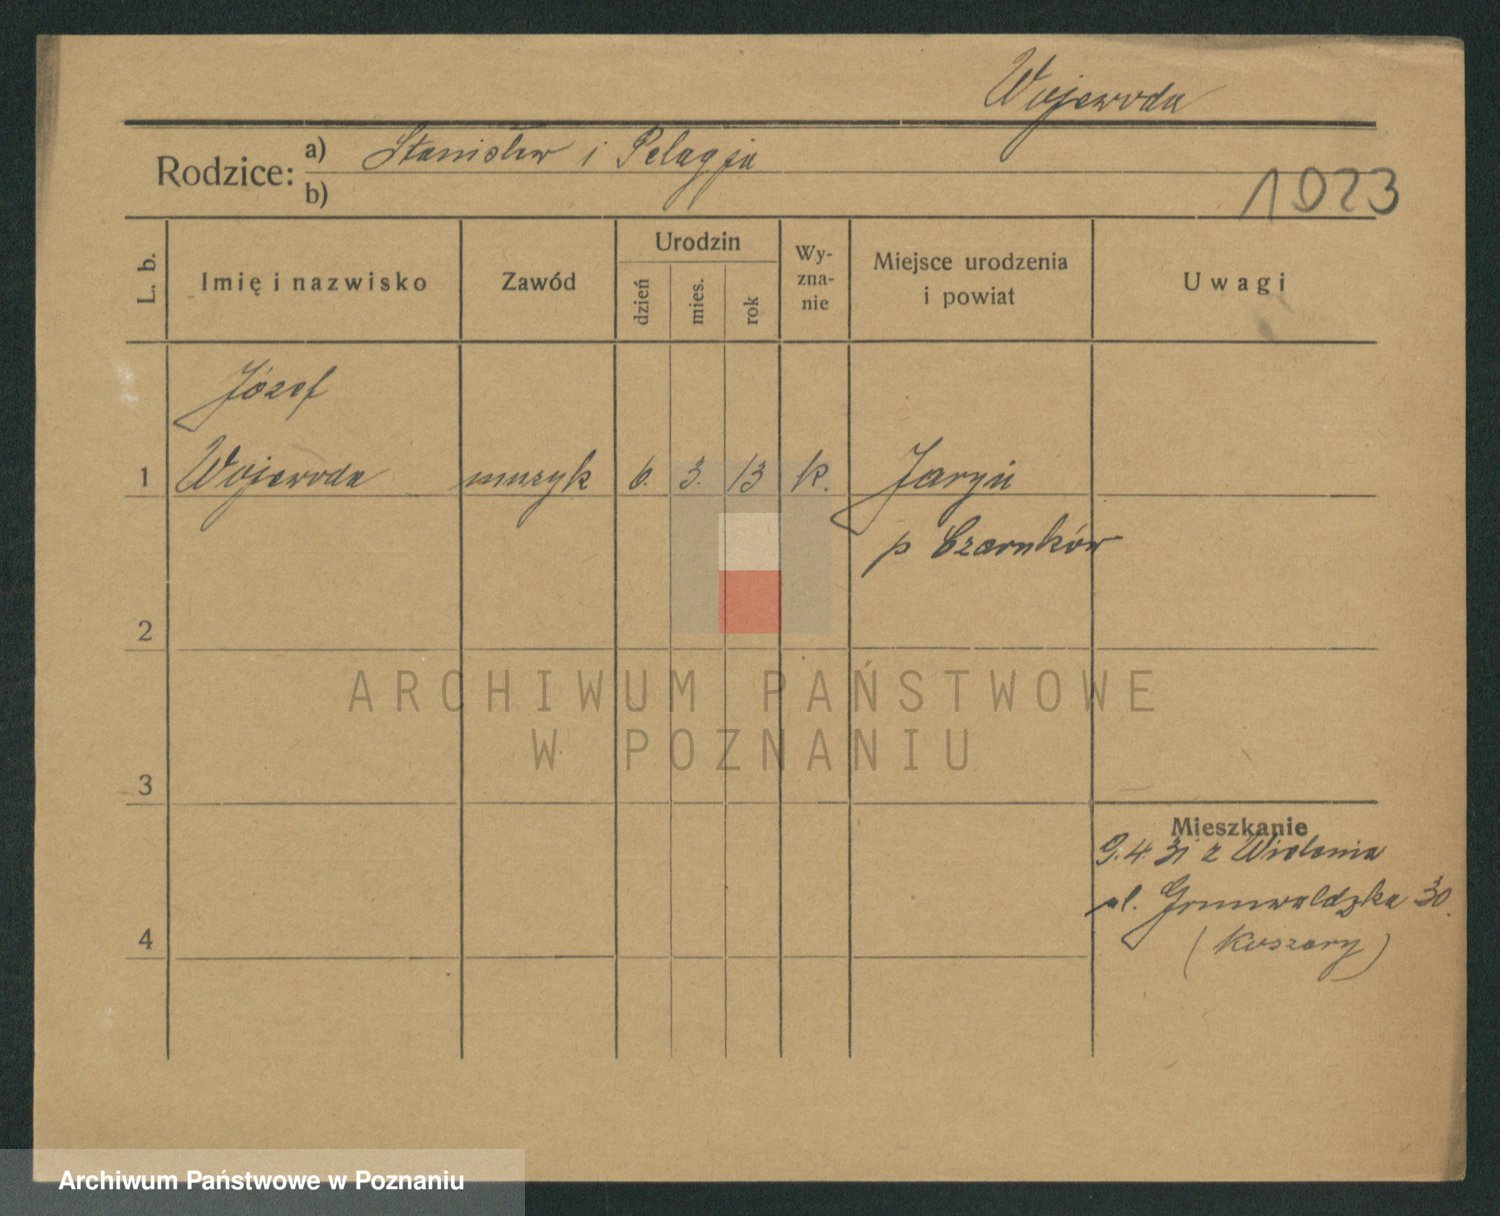 Wojewoda
Rodzice: a) Stanisław i Pelagja
b)
1023
L. b.
Imię i nazwisko
Zawód
Urodzin
dzień
mies.
rok
Wy-
zna-
nie
Miejsce urodzenia
i powiat
Uwagi
Józef
1 Wojewoda muzyk 6. 3. 13 k.
p Czarnków
2
ARCHIWUM PAŃSTWOWE
W POZNANIU
3
Mieszkanie
9.4.31 z Wielenia
ul. Grunwaldzka 30.
4
(Koszary)
Archiwum Państwowe w Poznaniu